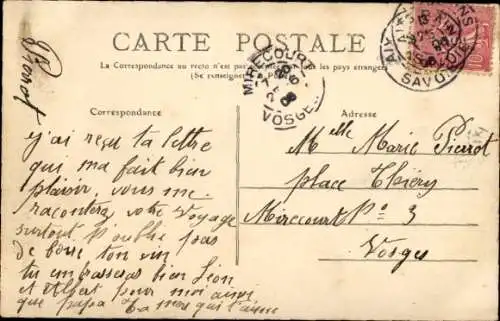 CARTE POSTALE
La Correspondance au recto n'est pas les pays étrangers
(Se renseigner
Correspondance
Adresse
MIRECOURT
VOSGES
AIX-LES-BAINS
SAVOIE
j'ai reçu ta lettre
qui, ma fait bien
plaisir, vous me
raconterez votre voyage
surtout n'oublie pas
de boire ton vin
tu embrasseras bien Léon
et Albert pour moi ainsi
que papa ta mère qui t'aime
Pierrot
Melle Marie Pierrot
place Thiéry
Mirecourt No 3
Vosges